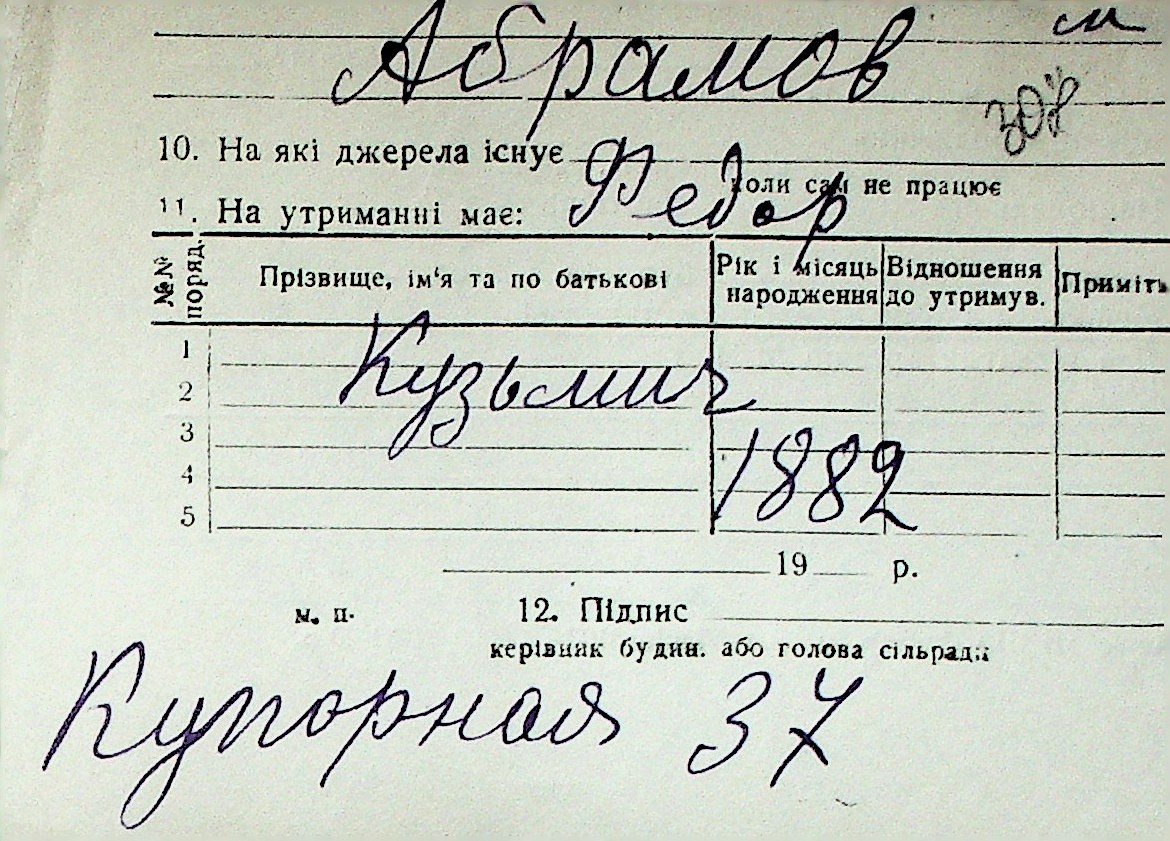 Абрамов м
10. На які джерела існує
коли сам не працює
11. На утриманні має:
Федор
№№ поряд.
Прізвище, ім'я та по батькові
Рік і місяць народження
Відношення до утримув.
Приміть
1
Кузьмич
2
3
1882
4
5
19 р.
м. п.
12. Підпис
керівник будин. або голова сільради
Купорная 37